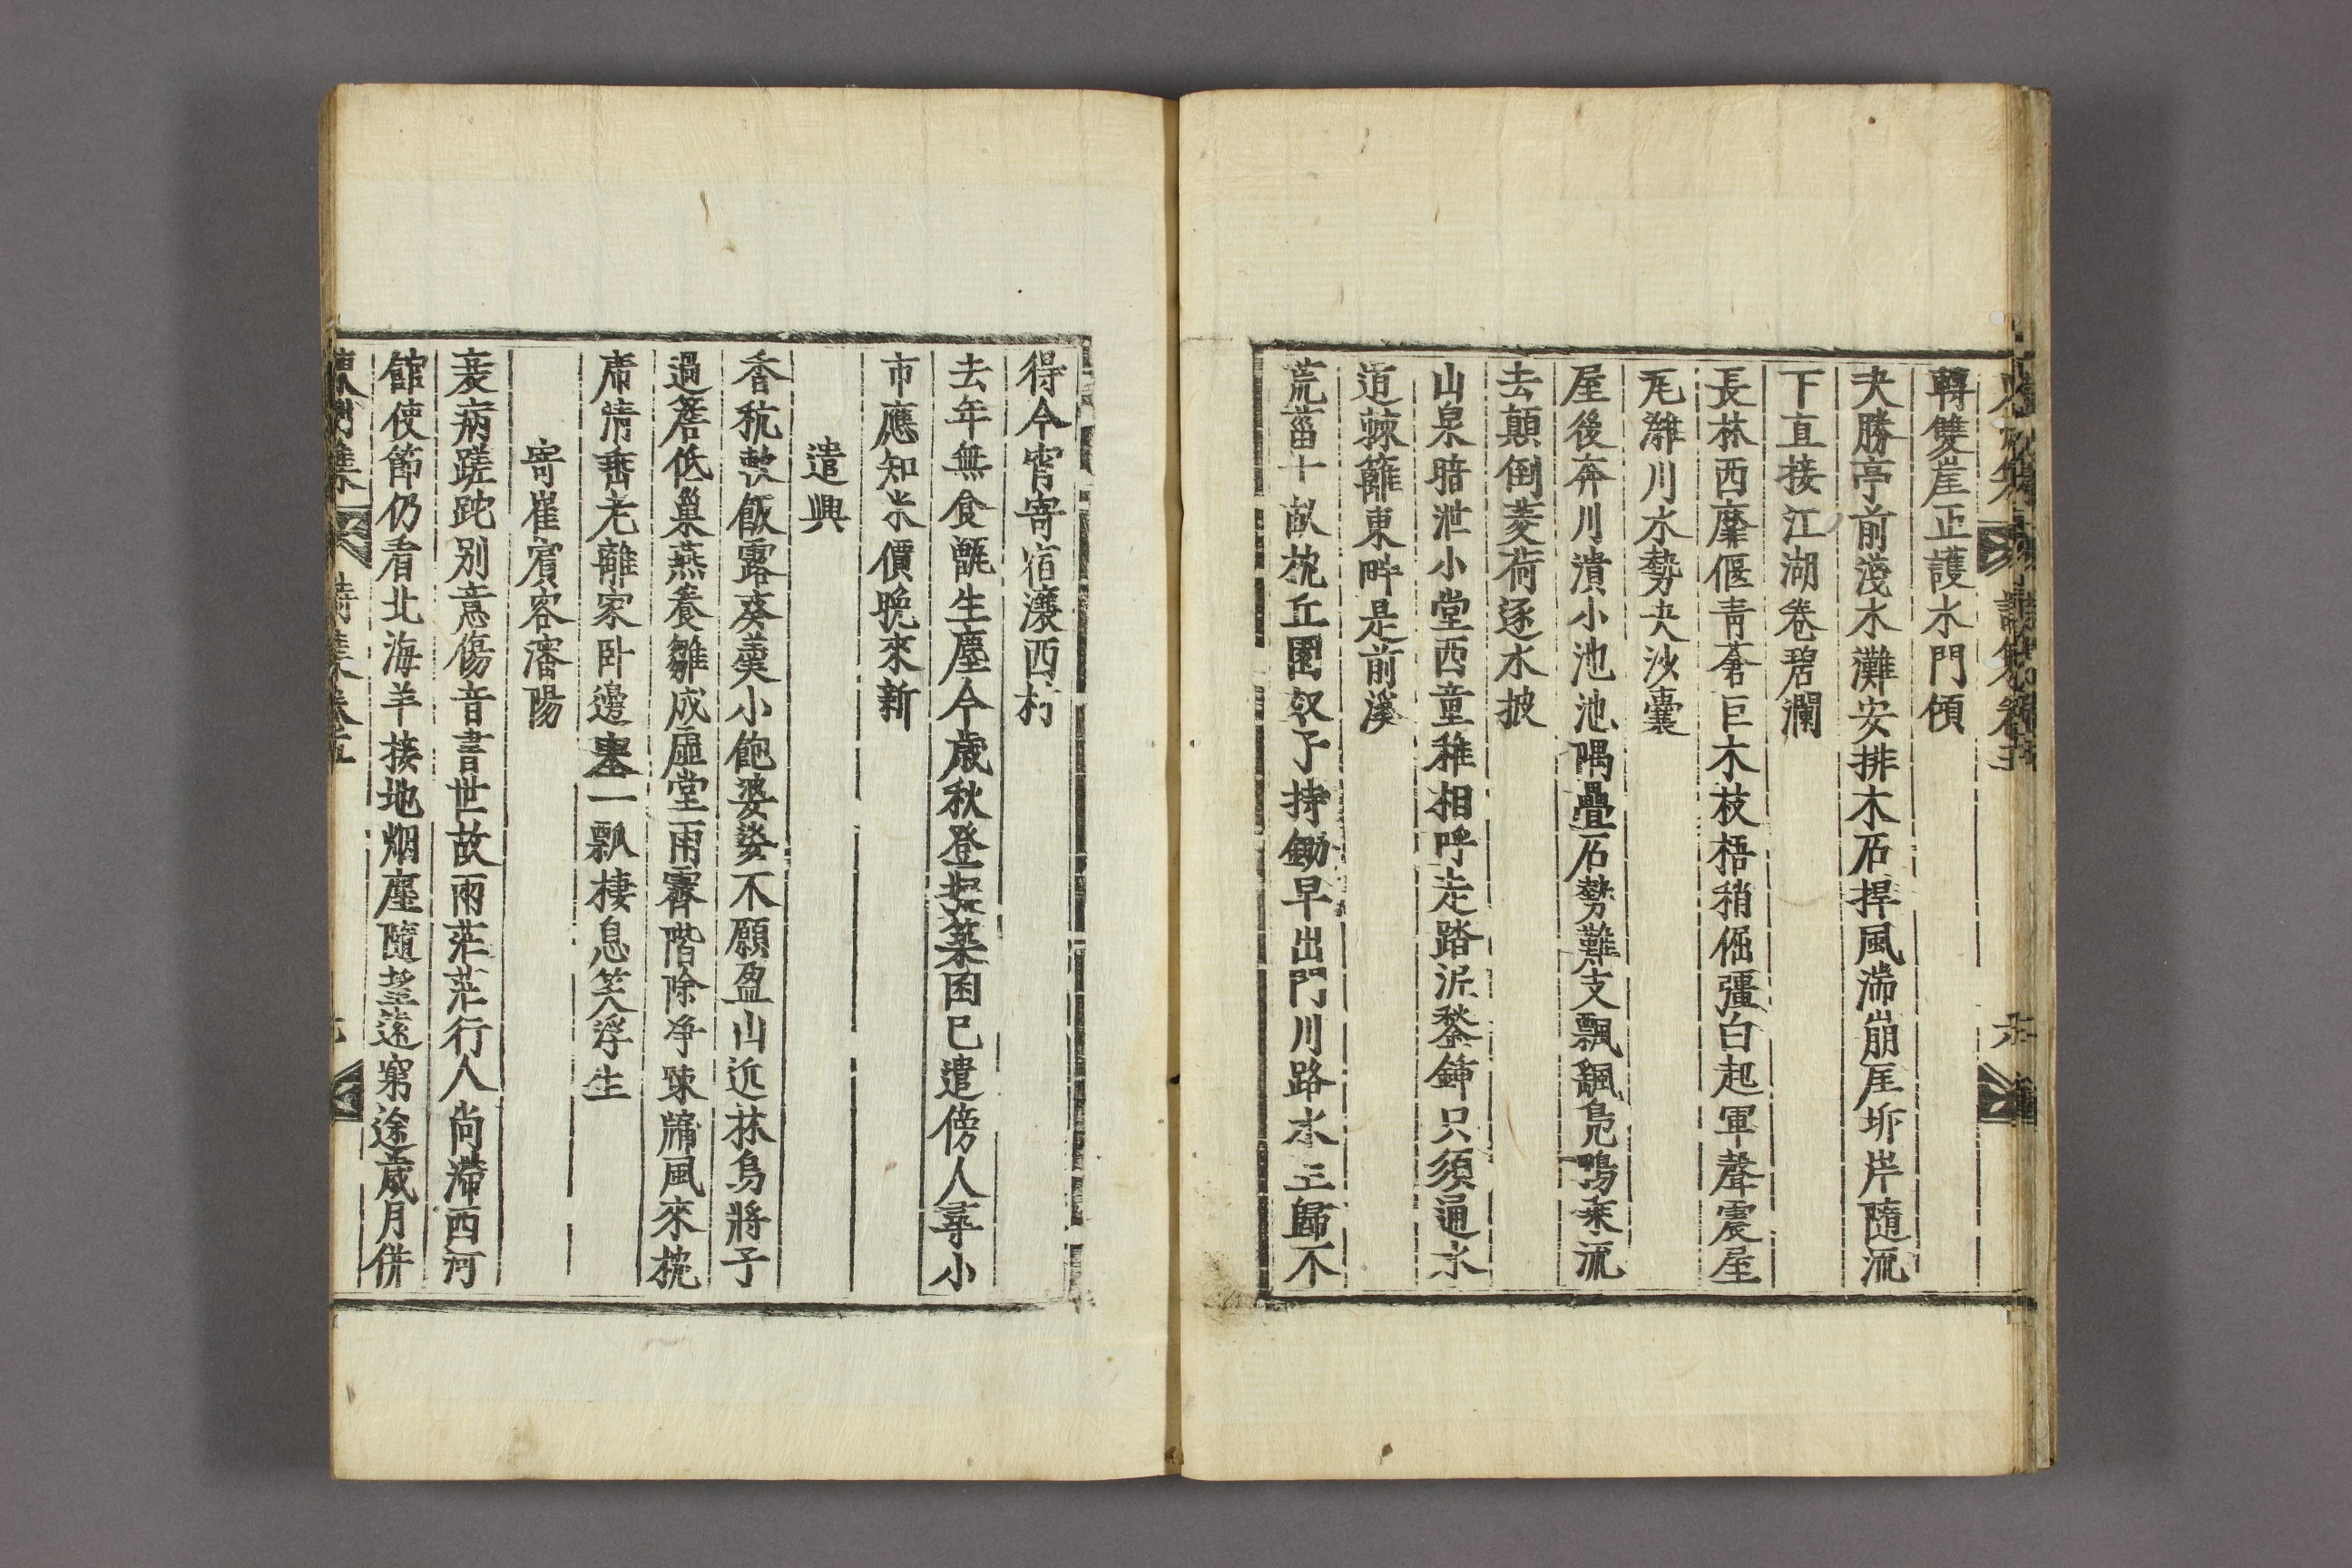 轉雙崖正護水門傾
夬勝亭前淺水灘安排木石捍風湍崩厓坼岸隨流
下直接江湖卷碧瀾
長林西靡偃青蒼巨木枝梧稍倔彊白起軍聲震屋
瓦濰川水勢决沙囊
屋後奔川潰小池池隅疊石勢難支飄飄鳧鴨乘流
去顛倒菱荷逐水披
山泉暗泄小堂西童稚相呼走踏泥鍫鍤只須通水
道棘籬東畔是前溪
荒菑十畝枕丘園奴子持鋤早出門川路水正歸不
得今宵寄宿瀼西村
去年無食甑生塵今歲秋登築囷已遣傍人尋小
市應知米價晚來新
遣興
香秔軟飯露葵羹小飽婆娑不願盈山近林烏將子
過簷低巢燕養雛成虛堂雨霽階除净踈牖風來枕
席清耆老離家卧邊塞一瓢棲息笑浮生
寄崔賓客瀋陽
衰病蹉跎别意傷音書世故兩茫茫行人尚滯西河
館使節仍看北海羊接地烟塵隨望遠窮途歲月併